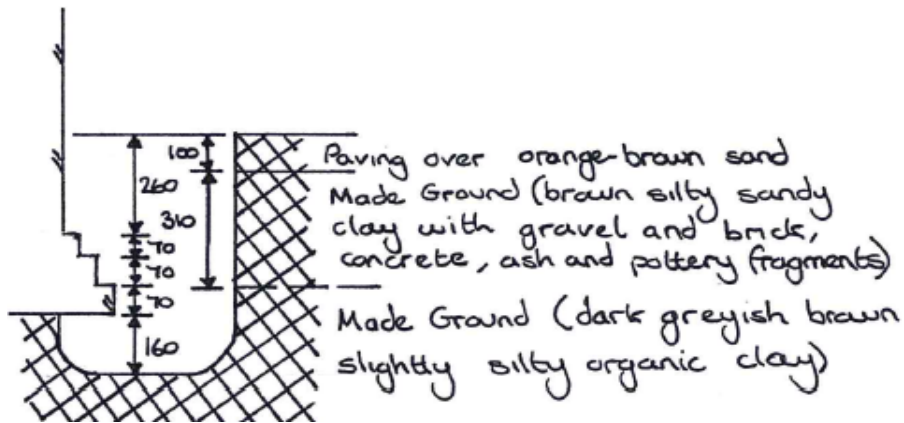 100
Paving over orange-brown sand
260
Made Ground (brown silty sandy
310
clay with gravel and brick,
70
concrete, ash and pottery fragments)
70
70
Made Ground (dark greyish brown
160
slightly silty organic clay)